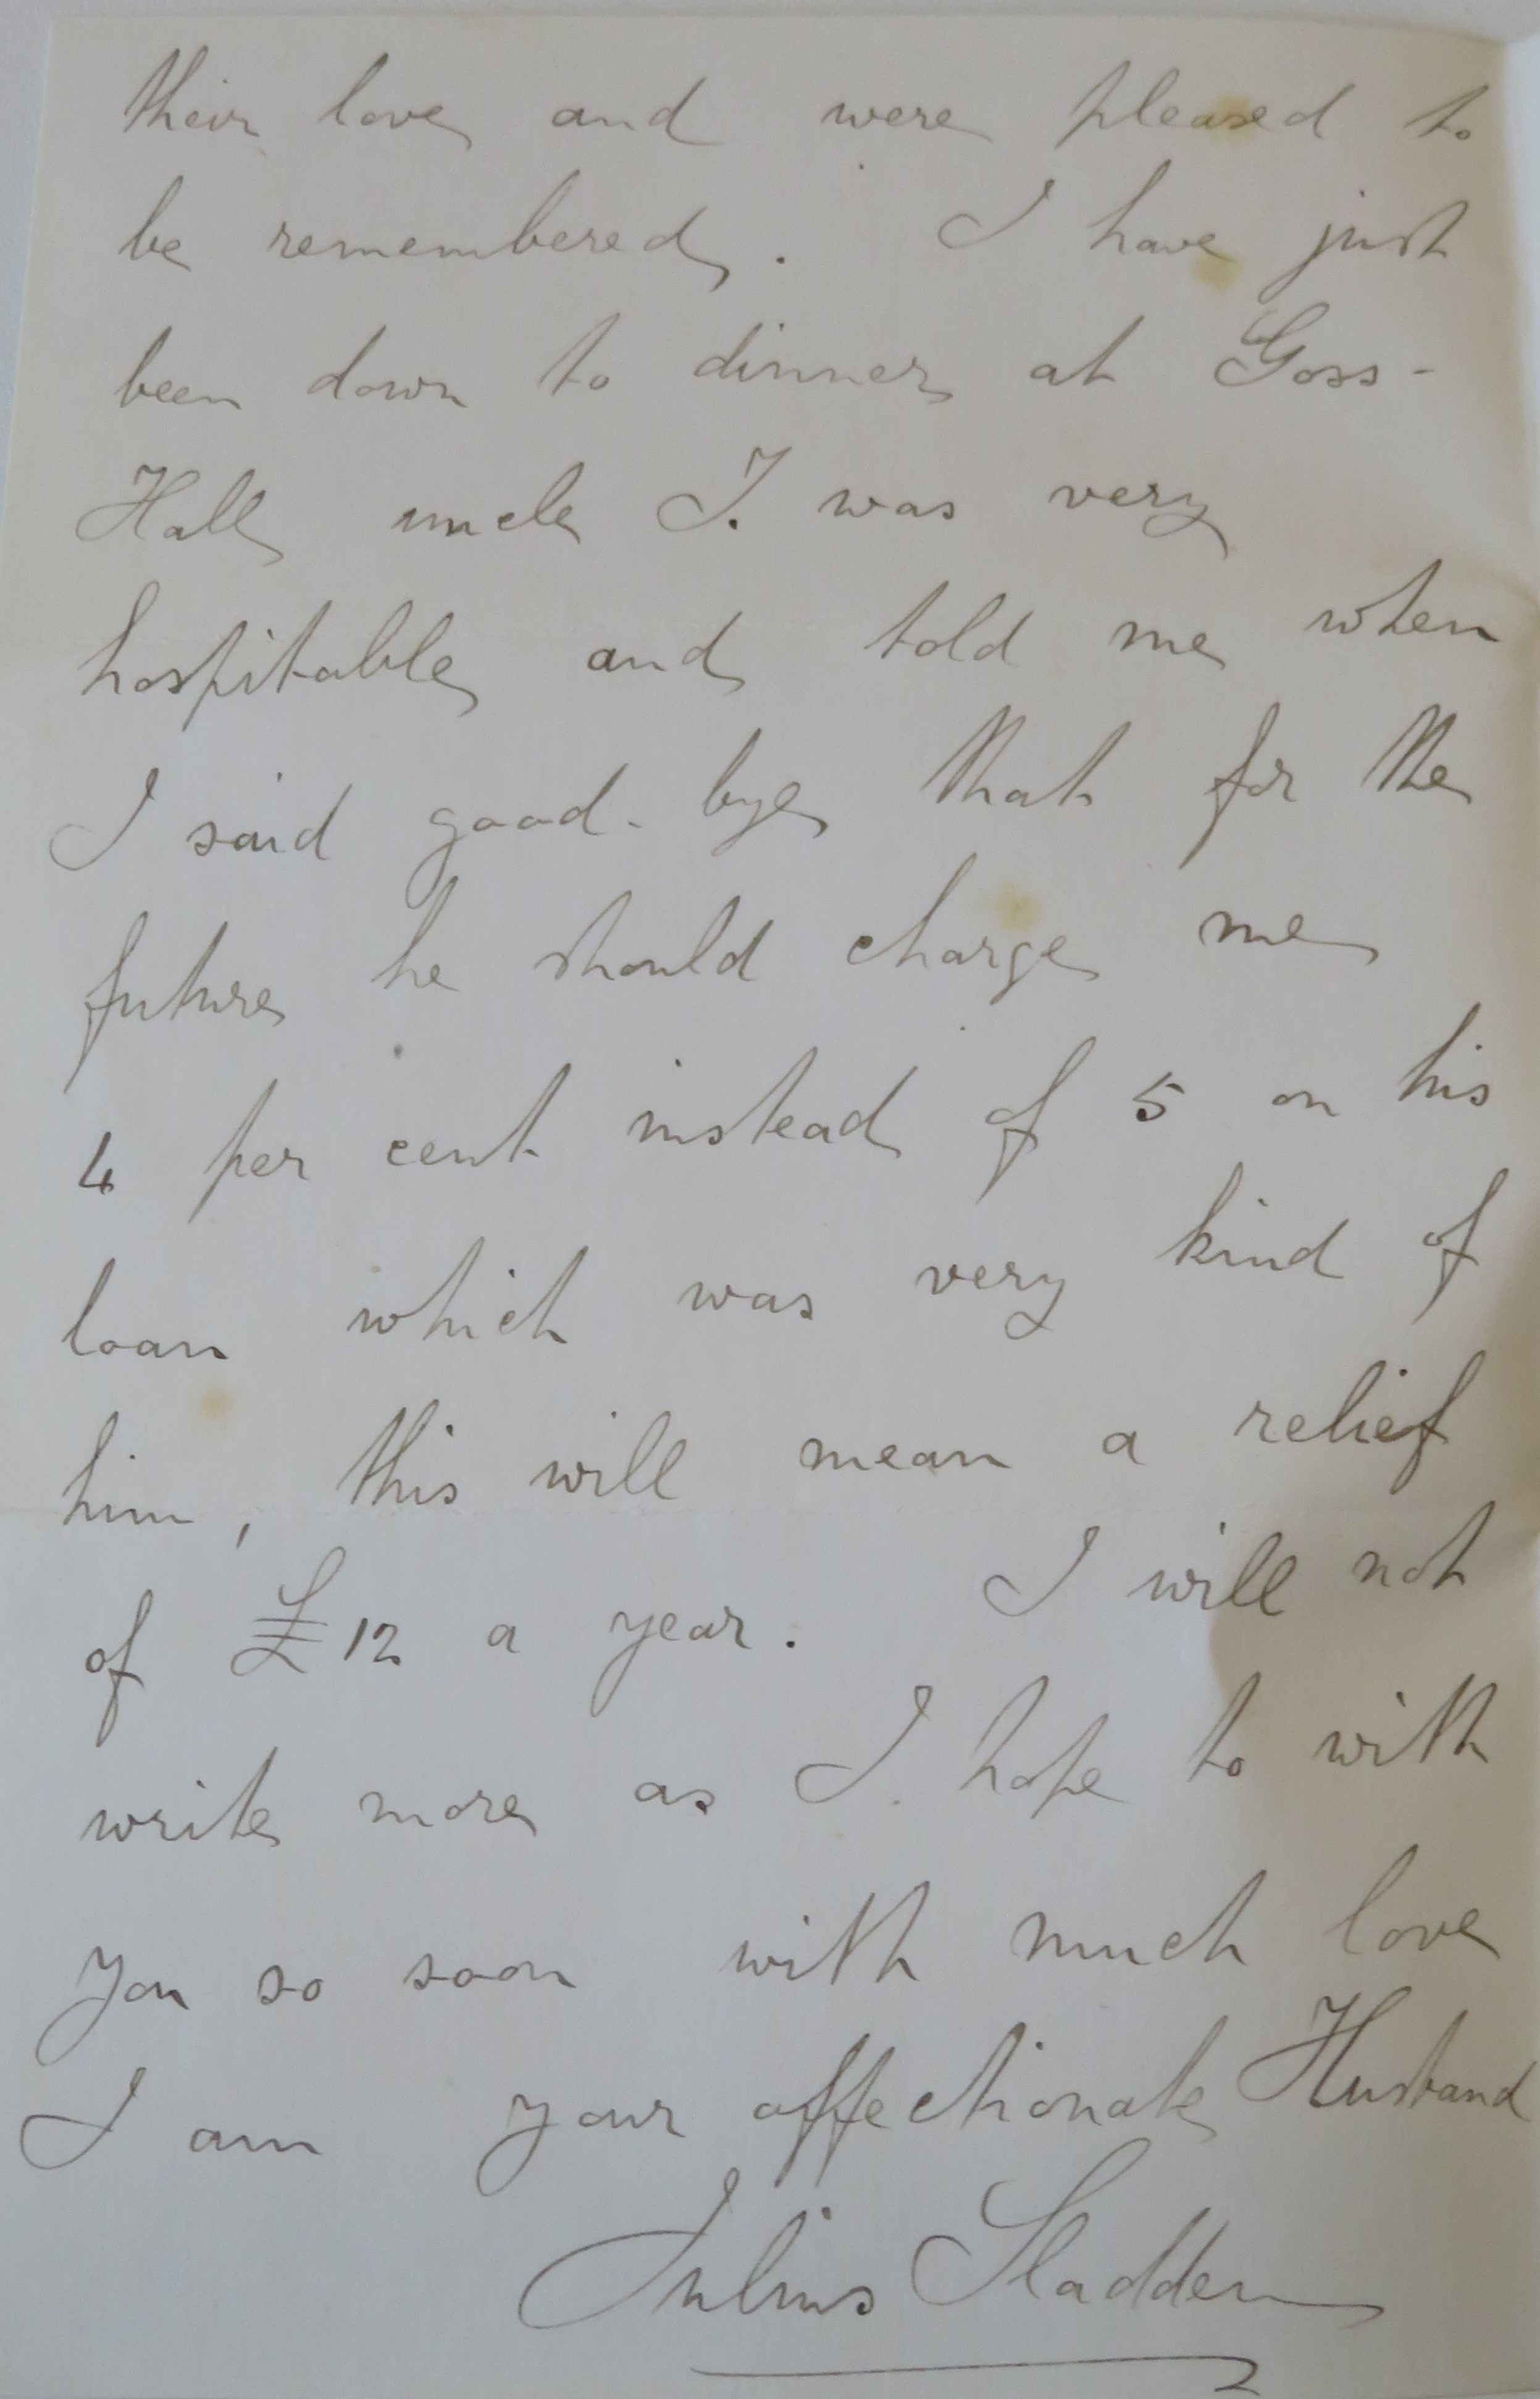 their love and were pleased to
be remembered. I have just
been down to dinner at Goss-
Hall uncle J. was very
hospitable and told me when
I said good-bye that for the
future he should charge me
4 per cent instead of 5 on his
loan which was very kind of
him, this will mean a relief
of £12 a year. I will not
write more as I hope to with
you so soon with much love
I am your affectionate Husband
Julius Sladden